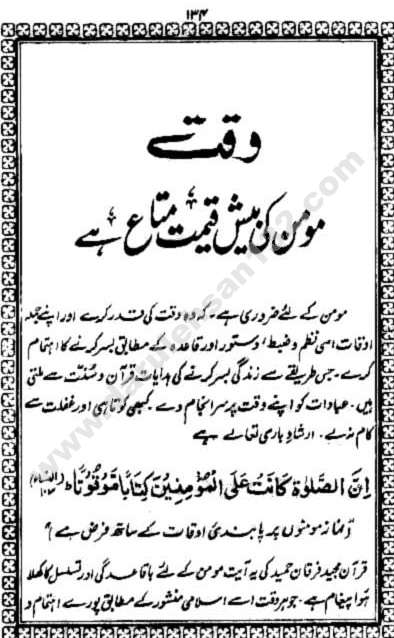 ۱۳۴
وقت
مومن کی بیش قیمت متاع ہے
مومن کے لئے ضروری ہے۔ کہ وہ وقت کی قدر کرے اور اپنے جملہ
اوقات اسی نظم و ضبط، دستور اور قاعدہ کے مطابق بسر کرنے کا اہتمام
کرے۔ جس طریقے سے زندگی بسر کرنے کی ہدایات قرآن و سنّت سے ملتی
ہیں۔ عبادات کو اپنے وقت پر سر انجام دے۔ کبھی کوتاہی اور غفلت سے
کام نہ لے۔ ارشادِ باری تعالےٰ ہے
اِنَّ الصَّلٰوۃَ کَانَتْ عَلَی الْمُؤْمِنِیْنَ کِتَابًا مَّوْقُوْتًا ط (النساء)
"نماز مومنوں پر پابندیٔ اوقات کے ساتھ فرض ہے"
قرآن مجید فرقان حمید کی یہ آیت مومن کے لئے باقاعدگی اور تسلسل کا کھلا
ہوا پیغام ہے۔ جو ہر وقت اسے اسلامی منشور کے مطابق پورے اہتمام و